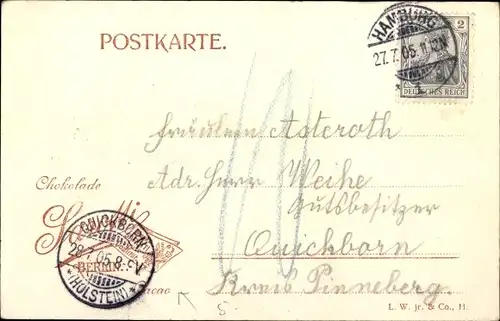 POSTKARTE.
HAMBURG
27.7.05.11-12N
1
2
DEUTSCHES REICH
Fräulein Asteroth
Adr. Herr Weihe
Gutsbesitzer
Quickborn
Kreis Pinneberg.
Chokolade
BERLIN
cao
QUICKBORN
28.7.05.8-9V
(HOLSTEIN)
L. W. jr. & Co., H.